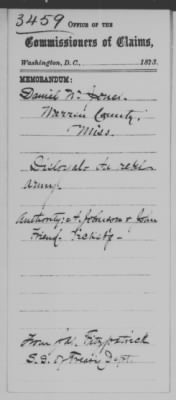 3459 OFFICE OF THE
Commissioners of Claims,
Washington, D.C., 1873.
MEMORANDUM:
Daniel W. Jones.
Warren County,
Miss.
Disloyal- In rebel
Army
Authority: A. Johnson & John
Friend. Vicksb'g-
From W. Fitzpatrick
S.A. of Treas'y Dept.